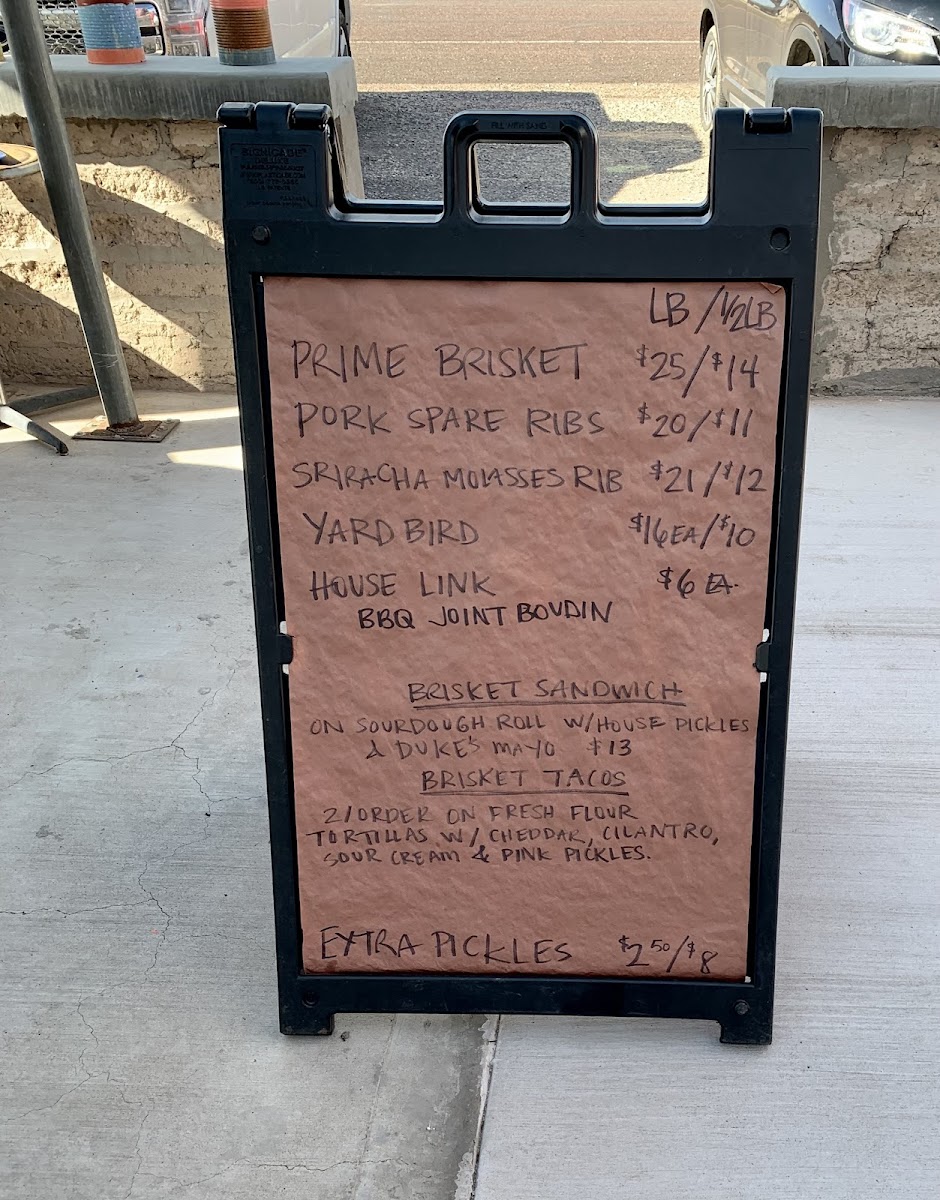 FILL WITH SAND
SIGNICADE®
DELUXE
LB / 1/2LB
PRIME BRISKET $25/$14
PORK SPARE RIBS $20/$11
SRIRACHA MOLASSES RIB $21/$12
YARD BIRD $16EA/$10
HOUSE LINK $6 EA.
BBQ JOINT BOUDIN
BRISKET SANDWICH
ON SOURDOUGH ROLL W/HOUSE PICKLES
& DUKE'S MAYO $13
BRISKET TACOS
2/ORDER ON FRESH FLOUR
TORTILLAS W/ CHEDDAR, CILANTRO,
SOUR CREAM & PINK PICKLES.
EXTRA PICKLES $2.50/$8